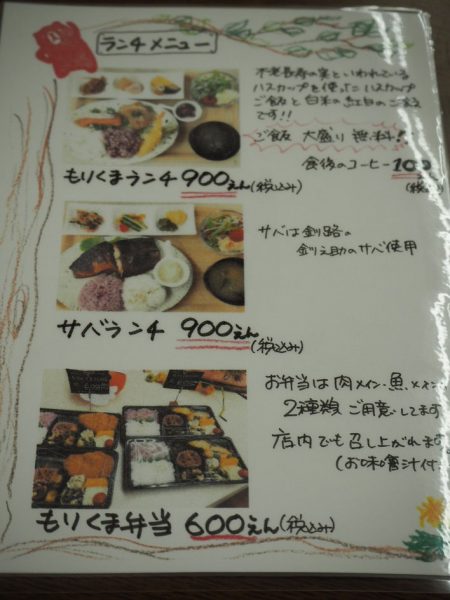 ランチメニュー
不老長寿の実といわれている
ハスカップを使ったハスカップ
ご飯と白米の紅白のご飯
です!!
ご飯 大盛り 無料!!
食後のコーヒー100
(税
もりくまランチ 900えん(税込み)
サバは釧路の
釧之助のサバ使用
サバランチ 900えん
(税込み)
お弁当は肉メイン・魚メイン
2種類 ご用意してます
店内でも召し上がれます
(お味噌汁付
もりくま弁当 600えん(税込み)